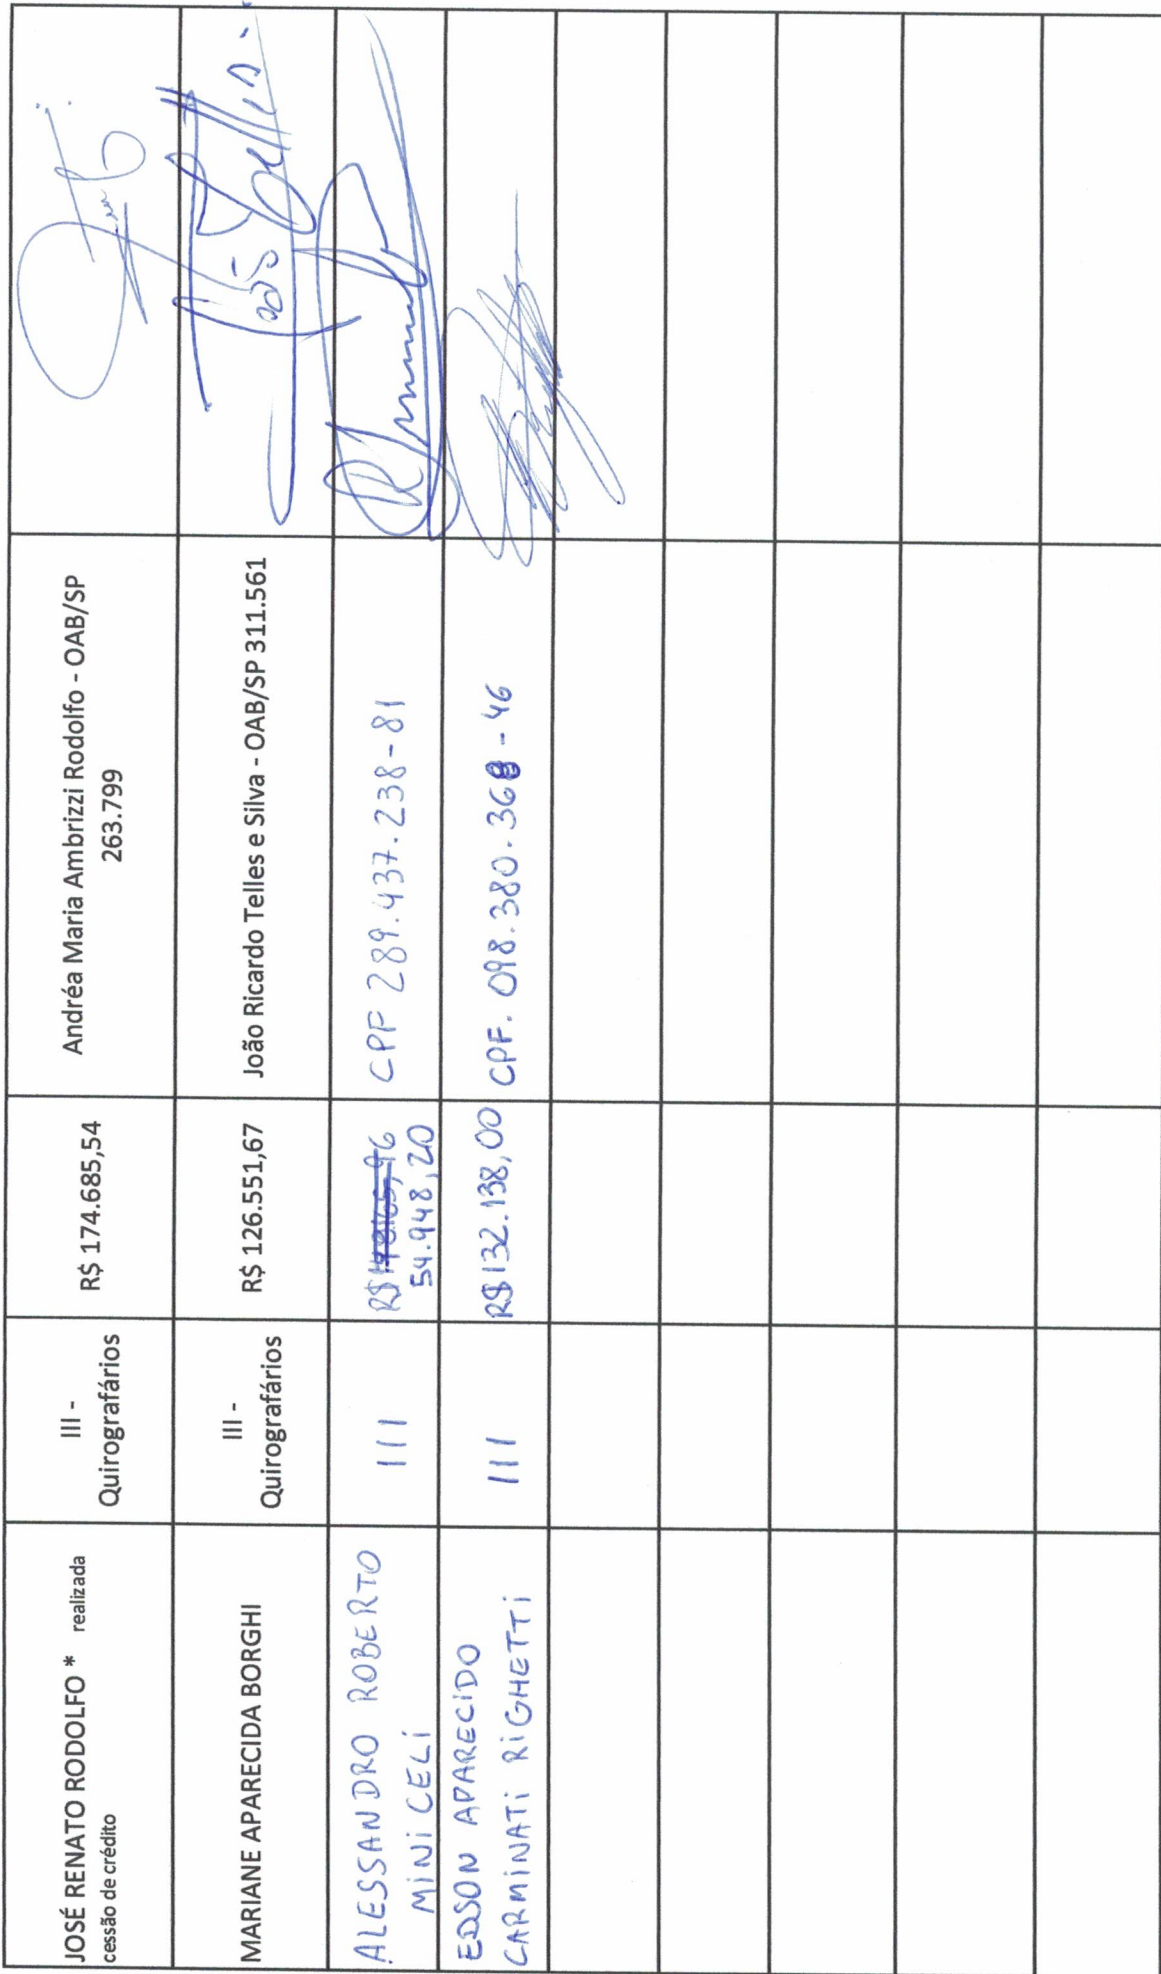 JOSÉ RENATO RODOLFO * realizada
cessão de crédito
III -
Quirografários
R$ 174.685,54
Andréa Maria Ambrizzi Rodolfo - OAB/SP
263.799
MARIANE APARECIDA BORGHI
III -
Quirografários
R$ 126.551,67
João Ricardo Telles e Silva - OAB/SP 311.561
ALESSANDRO ROBERTO
MINICELI
III
R$
54.948,20
CPF 289.437.238-81
EDSON APARECIDO
CARMINATI RIGHETTI
III
R$132.138,00
CPF. 098.380.368-46